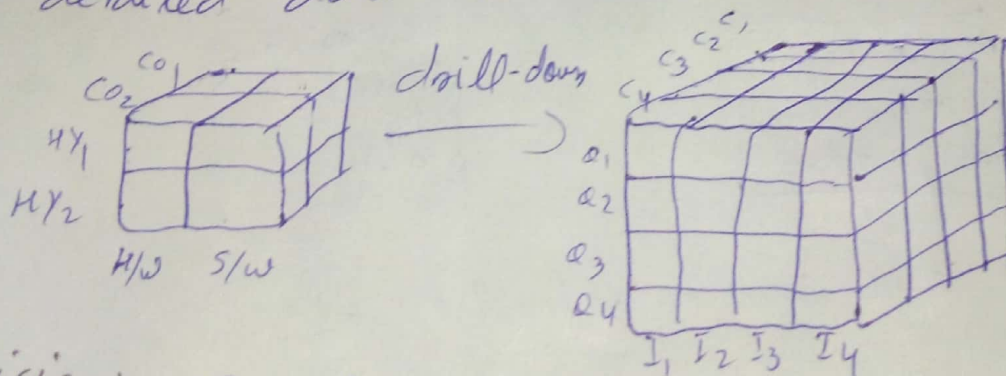 detailed
CO1
CO2
HY1
HY2
H/W S/W
drill-down
C1
C2
C3
C4
Q1
Q2
Q3
Q4
I1 I2 I3 I4